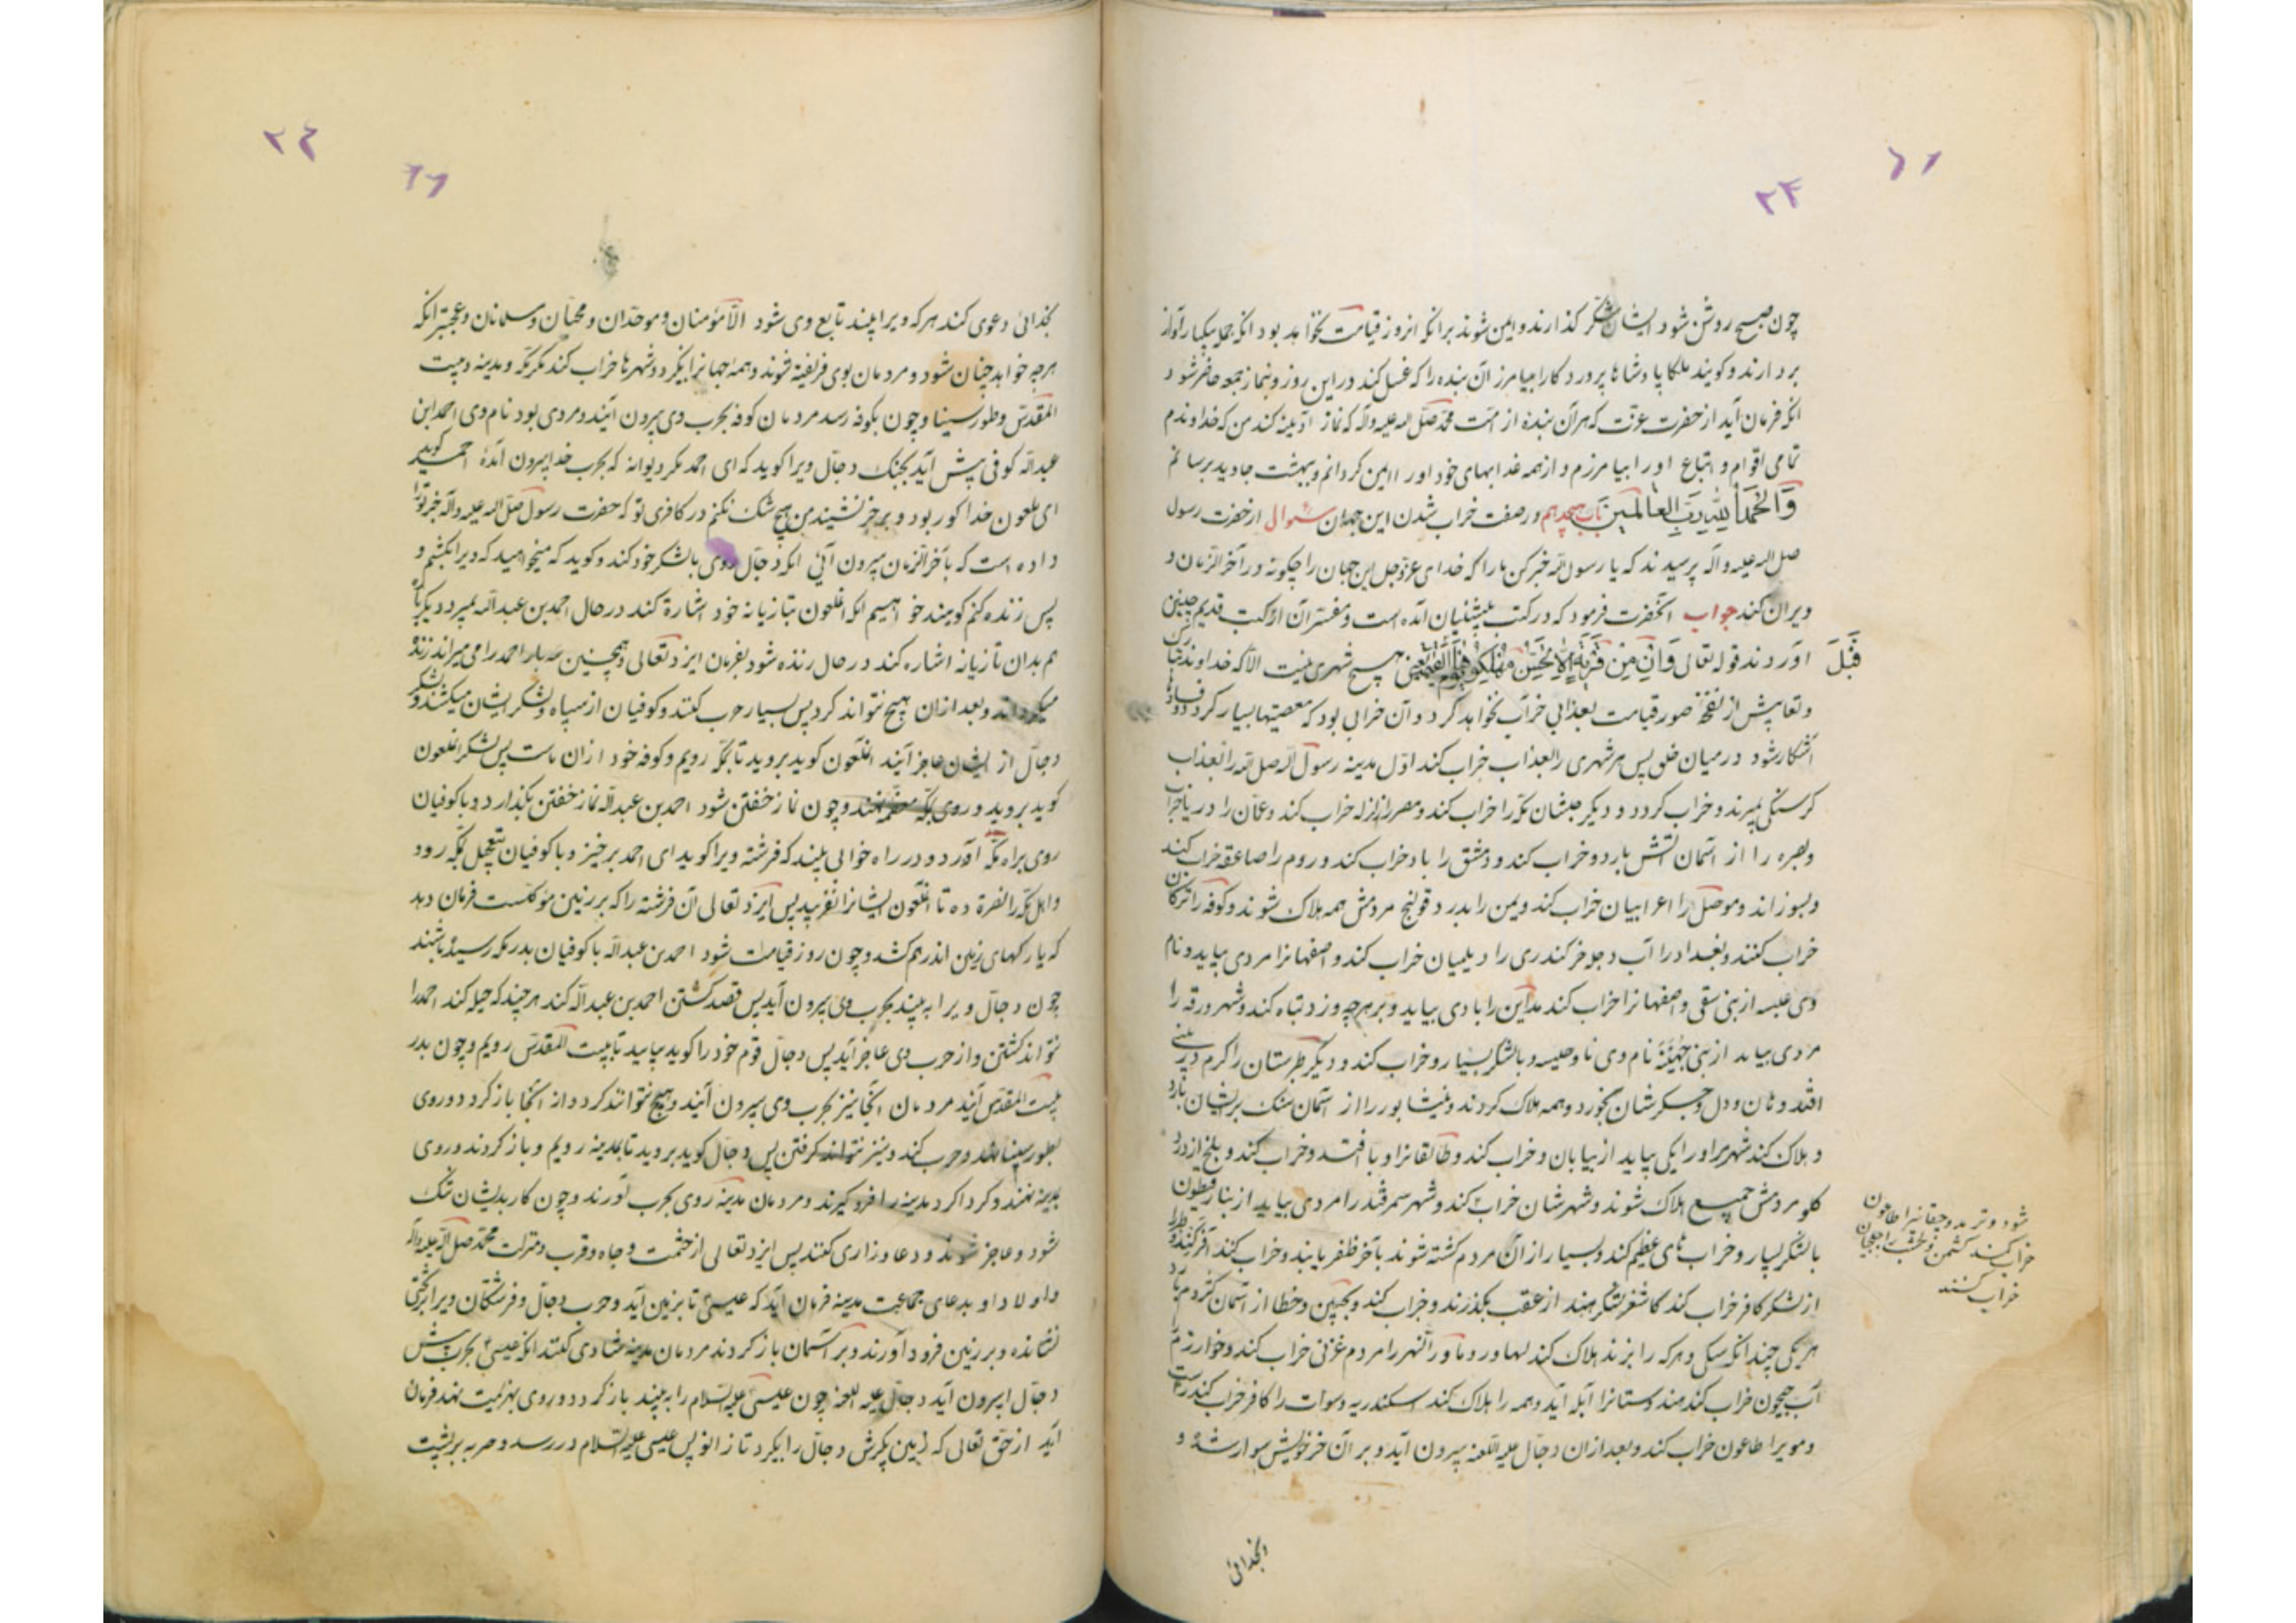 ۲۳
چون صبح روشن شود ایشان شکر گذارند و ایمن شوند برانکه انروز قیامت نخواهد بود انکه جمله بیکبار آواز
بردارند و کویند ملکا پادشاها پروردکارا بیامرز آن بنده را که غسل کند در این روز و بنماز جمعه حاضر شود
انکه فرمان آید از حضرت عزت که هر آن بنده از امت محمد صلی الله علیه واله که نماز آدینه کند من که خداوندم
تمامی اقوام و اتباع او را بیامرزم و از همه عذابهای خود او را ایمن کردانم و ببهشت جاوید برسانم
وَالحَمدُ لِلّٰهِ رَبِّ العالَمینَ باب هجدهم در صفت خراب شدن این جهان سؤال از حضرت رسول
صلی الله علیه واله پرسیدند که یا رسول الله خبر کن ما را که خدای عزوجل این جهان را چکونه در آخر الزمان
ویران کند جواب آنحضرت فرمود که در کتب پیشنیان آمده است و مفسران از کتب قدیم چنین
آوردند قوله تعالی وَاِن مِن قَریَةٍ اِلّا نَحنُ مُهلِکوها قَبلَ یَومِ القِیمَة یعنی هیچ شهری نیست الا که خداوند تبارک
وتعا پیش از نفخه صور قیامت بعذابی خراب نخواهد کرد و آن خرابی بود که معصیتها بسیار کردد و فسادها
آشکار شود در میان خلق پس هر شهری را بعذاب خراب کند اول مدینه رسول الله صلی الله را بعذاب
کرسنکی بمیرند و خراب کردد و دیکر حبشان مکه را خراب کند و مصر را زلزله خراب کند و عمان را دریا خراب
وبصره را از آسمان آتش بارد و خراب کند و دمشق را باد خراب کند و روم را صاعقه خراب کند
و بسوزاند و موصل را اعرابیان خراب کند و یمن را بدرد قولنج مردمش همه هلاک شوند و کوفه را ترکان
خراب کنند و بغداد را آب دجله خر کند ری را دیلمیان خراب کند و اصفهانرا مردی بیاید و نام
وی عبسه از بنی سقی و اصفهانرا خراب کند مداین را بادی بیاید و بر هر چه وزد تباه کند و شهر ورقه را
مردی بیاید از بنی جُهَینَة نام وی ناوحلیسه و با لشکر بسیار و خراب کند و دیکر طبرستان را کرم در بینی
افتد و نان و دل و جکرشان بخورد و همه هلاک کردند و نیشابور را از آسمان سنک بریشان بارد
و هلاک کند شهر هراو را یکی بیاید از بیابان و خراب کند و طالقانرا وبا افتد و خراب کند و بلخ از درد
کلو مردمش جمیع هلاک شوند و شهرشان خراب کند و شهر سمرقند را مردی بیاید از بنار قیطون
با لشکر بسیار و خرابهای عظیم کند و بسیار از آن مردم کشته شوند بآخر ظفر یابند و خراب کند
از لشکر کافر خراب کند کاشغر لشکر هند از عقب بکذرند و خراب کند و بحپین و خطا از آسمان کژدم بارد
هر یکی چند انکه سکی و هر که را بزند هلاک کند لهاور و ماورا النهر را مردم غزنی خراب کند و خوارزم
آب جیحون خراب کند هندوستانرا آبله آید و همه را هلاک کند اسکندریه و سوات را کافر خراب کند
و موبرا طاعون خراب کند و بعد از ان دجال علیه اللعنه بیرون آید و بر آن خر خویش سوار شده و
قَبلَ
شود و ترمد و جقانیرا طاعون
خراب کند
خراب کنند
و بخدائی
۲٤
بخدائی دعوی کند هر که ویرا بیند تابع وی شود الا مؤمنان و موحدان و محبان و مسلمانان و عجبتر انکه
هر چه خواهد چنان شود و مردمان بوی فریفته شوند و همه جهانرا بگیرد و شهرها خراب کند مکر مکه و مدینه و بیت
المقدس و طور سینا و چون بکوفه رسد مردمان کوفه بحرب وی بیرون آیند و مردی بود نام وی احمد ابن
عبدالله کوفی پیش آید بجنک دجال ویرا کوید که ای احمد مکر دیوانه که بحرب خدا بیرون آمدهٔ احمد کوید
ای ملعون خدا کور بود و بر خر نشیند من هیچ شک نکنم در کافری تو که حضرت رسول صلی الله علیه واله خبر تو را
داده است که بآخر الزمان بیرون آئی انکه دجال روی بالشکر خود کند و کوید که میخواهید که ویرا بکشم و
پس زنده کنم کویند خواهیم انکه املعون بتازیانه خود اشارة کند در حال احمد بن عبدالله بمیرد و دیکر باره
هم بدان تازیانه اشاره کند در حال زنده شود بفرمان ایزد تعالی و همچنین سه بار احمد را می میراند و زنده
میکرداند و بعد از ان هیچ نتواند کرد پس بسیار حرب کنند و کوفیان از سپاه و لشکر ایشان میکشند و لشکر
دجال از ایشان عاجز آیند املعون کوید بروید تا بمکه رویم و کوفه خود از ان ماست پس لشکر املعون
کوید بروید و روی بمکه معظمه نهند و چون نماز خفتن شود احمد بن عبدالله نماز خفتن بکذارد و با کوفیان
روی براه مکه آورد و در راه خوابی بیند که فرشته ویرا کوید ای احمد برخیز و با کوفیان بتعجیل بمکه رود
واهل مکه را نصرة ده تا املعون ایشانرا نفریبد پس ایزد تعالی آن فرشته را که بر زمین موکلست فرمان دهد
که یا رکهای زمین اندر هم کشد و چون روز قیامت شود احمد بن عبدالله با کوفیان بدر مکه رسیده باشند
چون دجال ویرا به بیند بحرب وی بیرون آید پس قصد کشتن احمد بن عبدالله کند هر چند که حیله کند احمد را
نتواند کشتن و از حرب وی عاجز آید پس دجال قوم خود را کوید بیایید تا ببیت المقدس رویم و چون بدر
بیت المقدس آیند مردمان انجا نیز بحرب وی بیرون آیند و هیچ نتوانند کرد و از انجا باز کردد و روی
بطور سینا نهد و حرب کند و نیز نتواند کرفتن پس دجال کوید بروید تا بمدینه رویم و باز کردند و روی
بمدینه نهند و کرد اکرد مدینه را فرو کیرند و مردمان مدینه روی بحرب آورند و چون کار بدیشان تنک
شود و عاجز شوند و دعا و زاری کنند پس ایزد تعالی از حشمت و جاه و قرب و منزلت محمد صلی الله علیه واله
و اولاد او بدعای جماعت مدینه فرمان آید که عیسی تا بزمین آید و حرب دجال و فرشتکان ویرا بر تختی
نشانده و بر زمین فرود آورند و بر آسمان باز کردند مردمان مدینه شادی کنند انکه عیسی بحرب پیش
دجال بیرون آید دجال علیه اللعنه چون عیسی علیه السلام را به بیند باز کردد و روی بهزیمت نهد فرمان
آید از حق تعالی که زمین بکیرش دجال را بگیرد تا زانو پس عیسی علیه السلام در رسد و حربه بر پشت